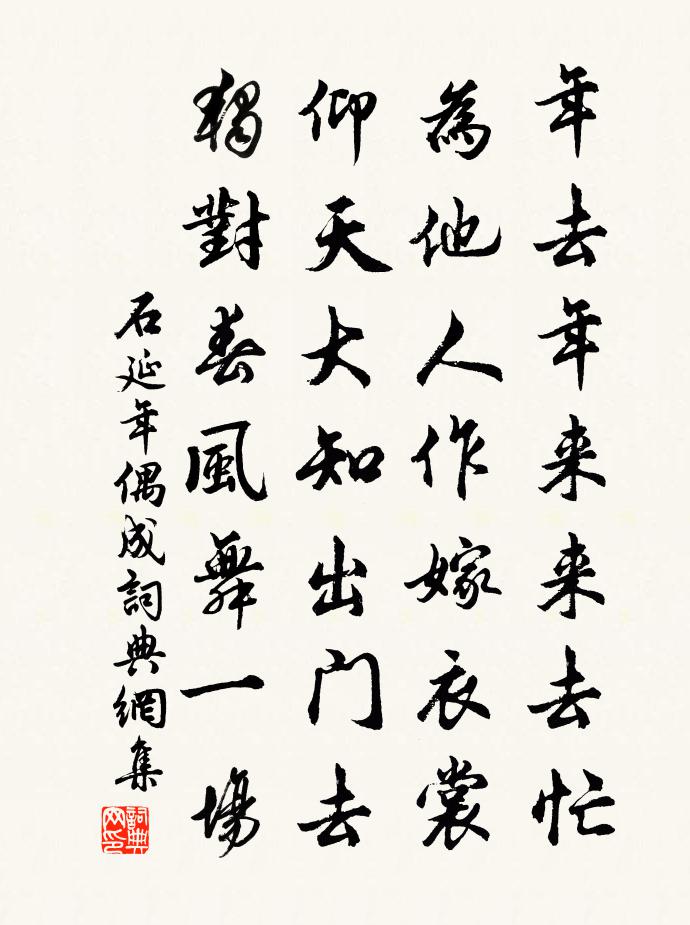 年去年来来去忙
為他人作嫁衣裳
仰天大知出门去
獨對春風舞一場
石延年偶成詞典網集
詞典网印